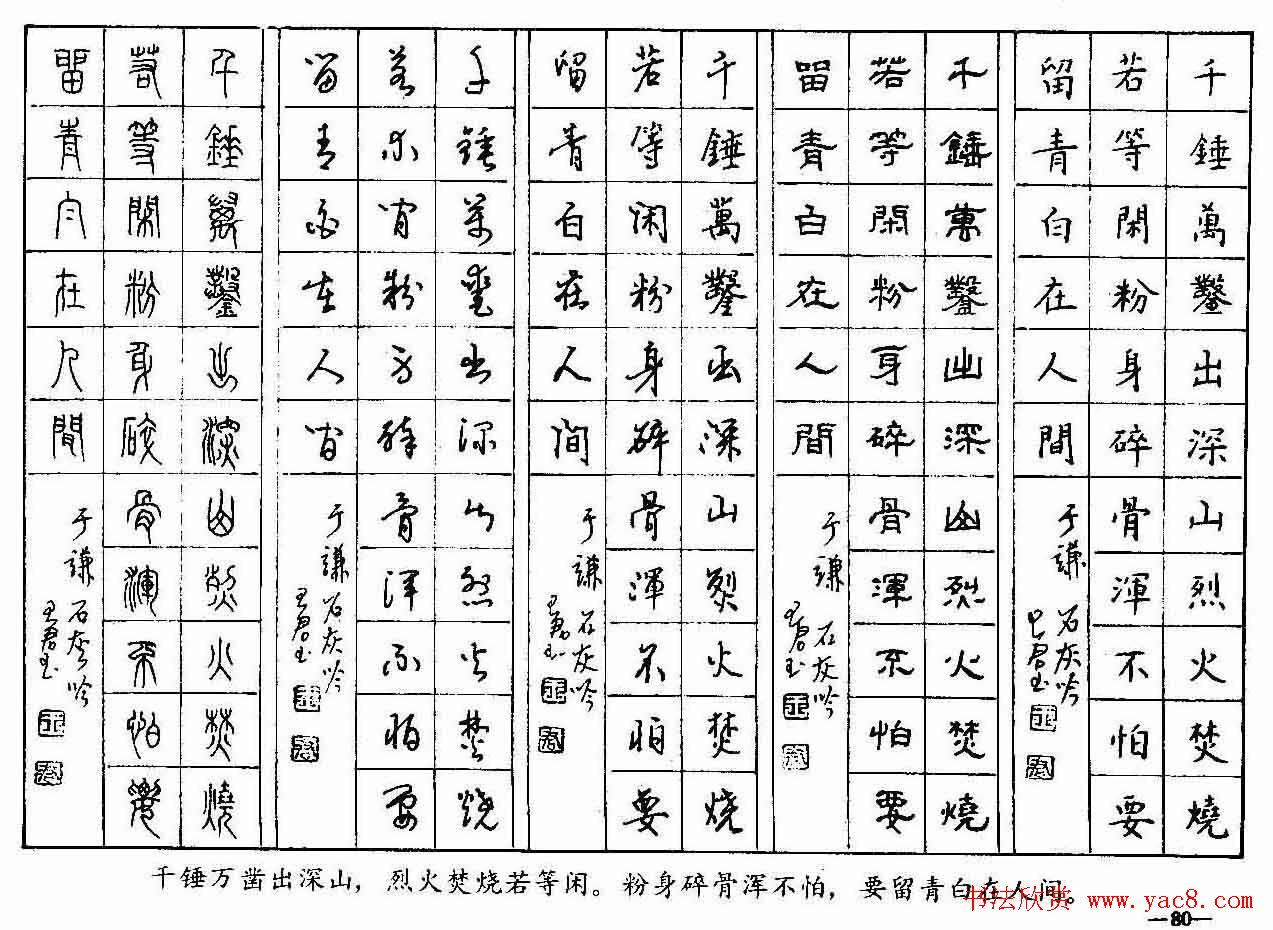 千錘萬鑿出深山烈火焚燒
若等閑粉身碎骨渾不怕要
留青白在人間
于謙 石灰吟
千錘萬鑿出深山烈火焚燒
若等閑粉身碎骨渾不怕要
留青白在人間
于謙 石灰吟
千錘萬鑿出深山烈火焚燒
若等閑粉身碎骨渾不怕要
留青白在人間
于謙 石灰吟
千錘萬鑿出深山烈火焚燒
若等閑粉身碎骨渾不怕要
留青白在人間
于謙 石灰吟
千錘萬鑿出深山烈火焚燒
若等閑粉身碎骨渾不怕要
留青白在人間
于謙 石灰吟
千锤万凿出深山，烈火焚烧若等闲。粉身碎骨浑不怕，要留青白在人间。
书法欣赏 www.yac8.com
—80—